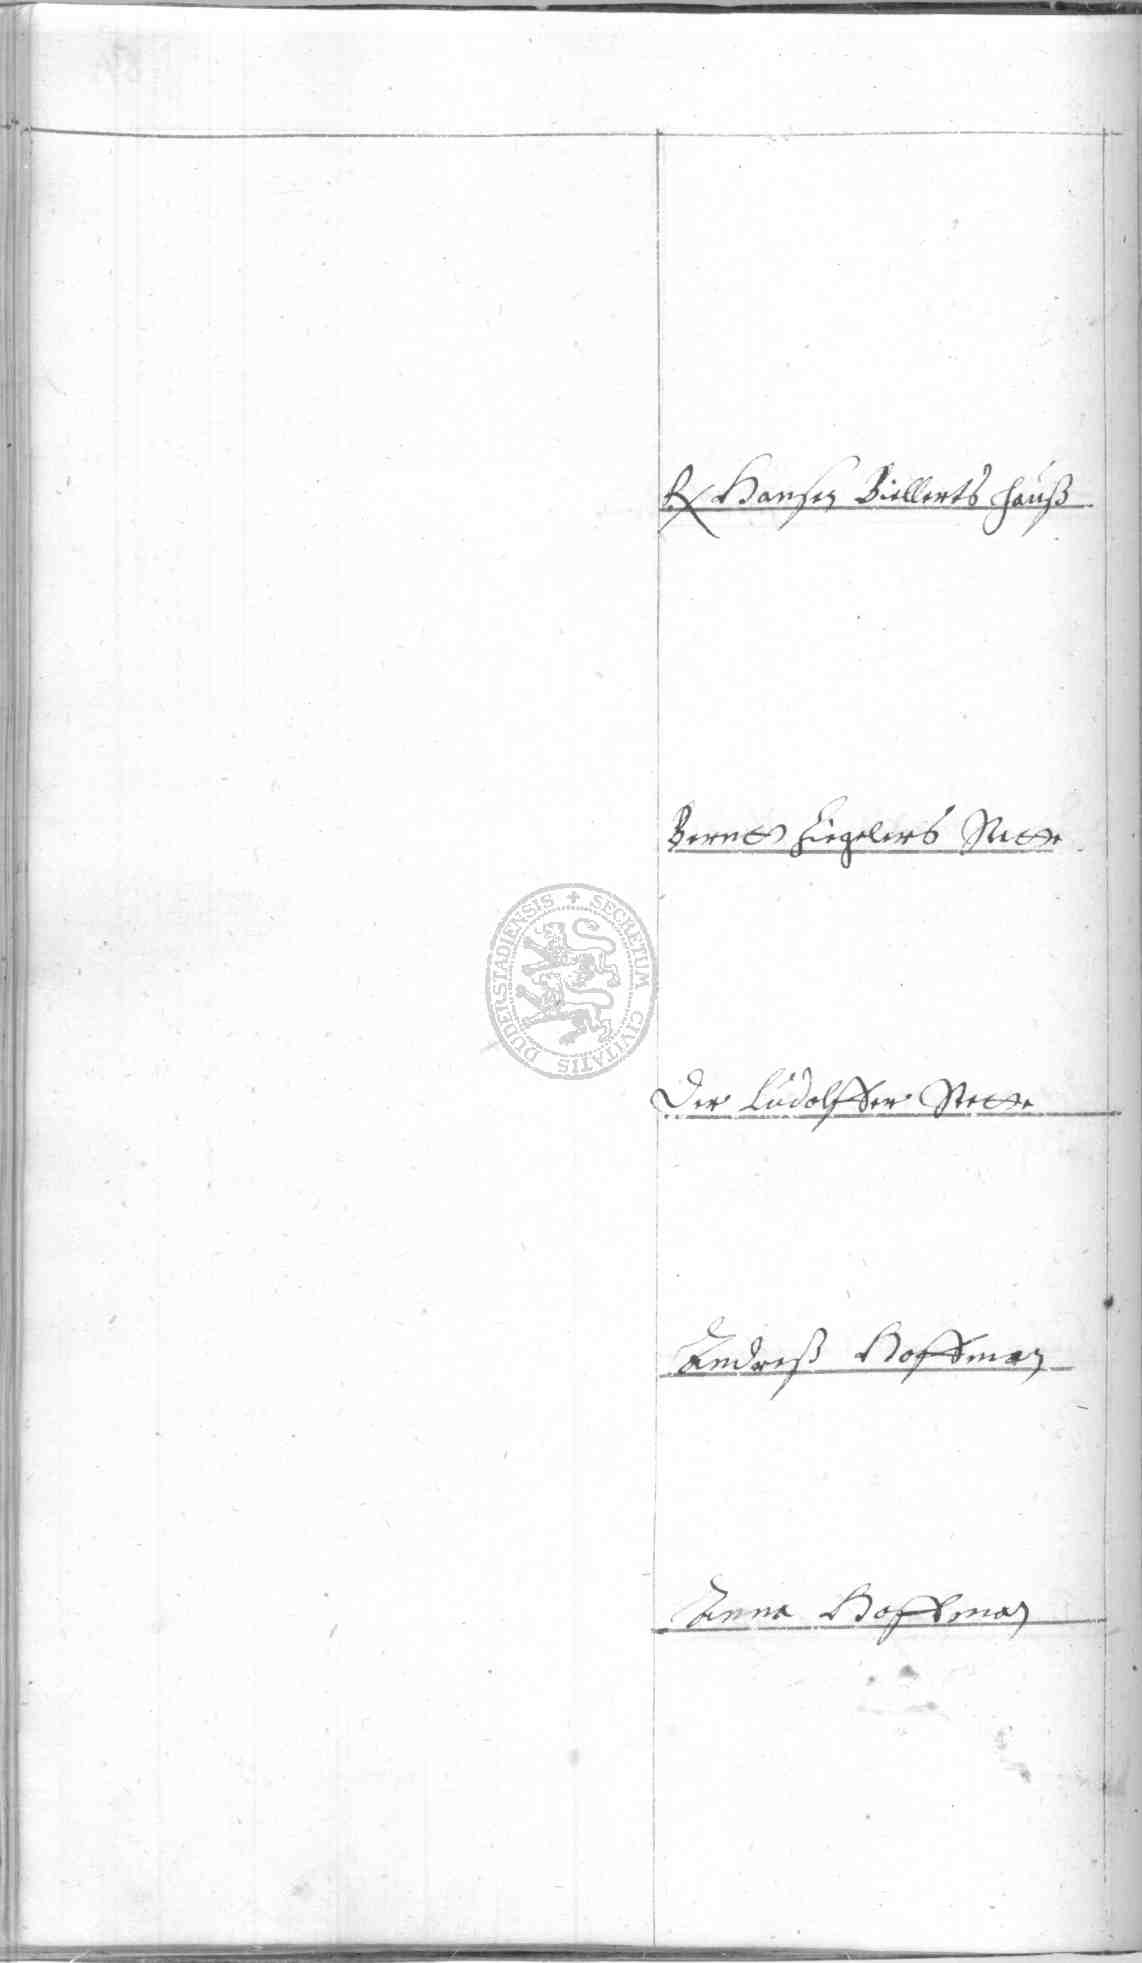 Hansen Billerts hauß
Bernt Ziegelers Stette
Der Ludolffer Stette
Andreß Hoffman
Anna Hoffman
SECRETUM CIVITATIS DUDERSTADIENSIS